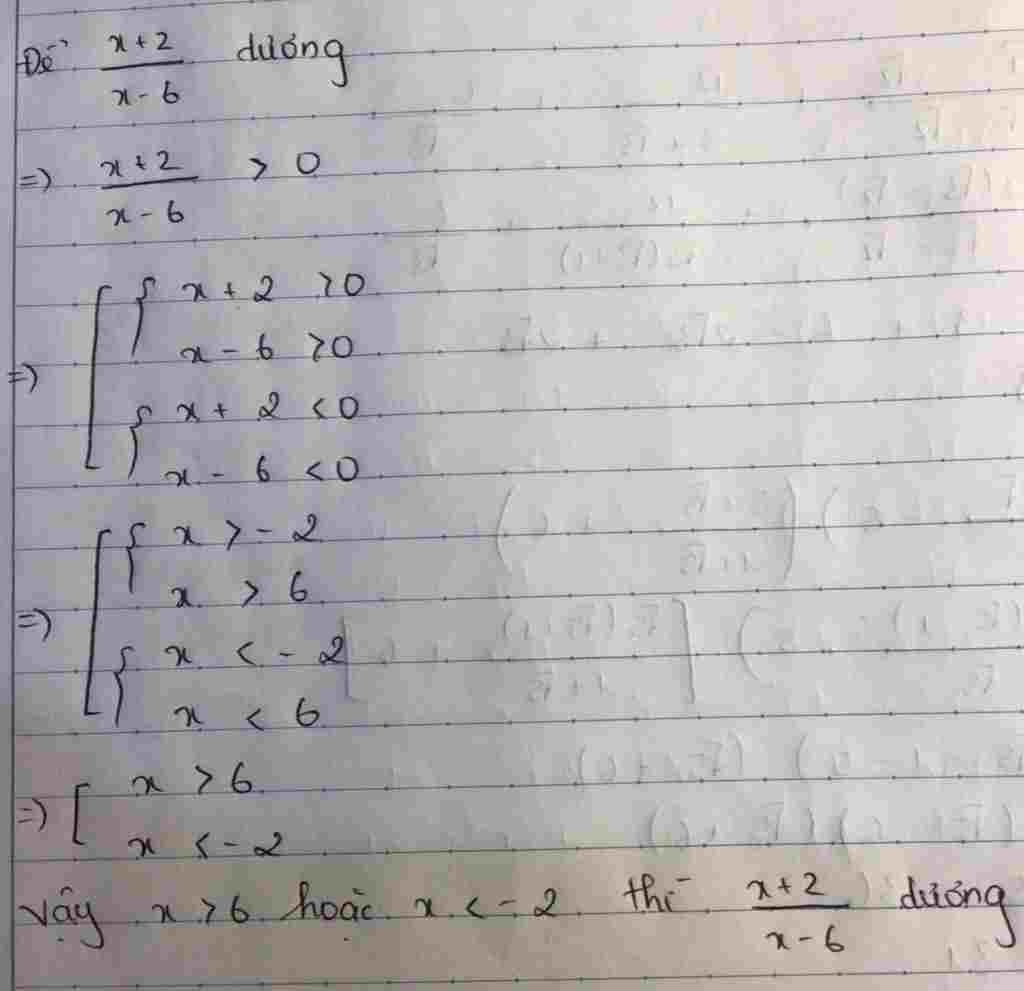 Để x+2/x-6 dương
=) x+2/x-6 > 0
=) [ { x + 2 > 0
x - 6 > 0
{ x + 2 < 0
x - 6 < 0
=) [ { x > - 2
x > 6
{ x < - 2
x < 6
=) [ x > 6
x < - 2
Vậy x > 6 hoặc x < - 2 thì x+2/x-6 dương